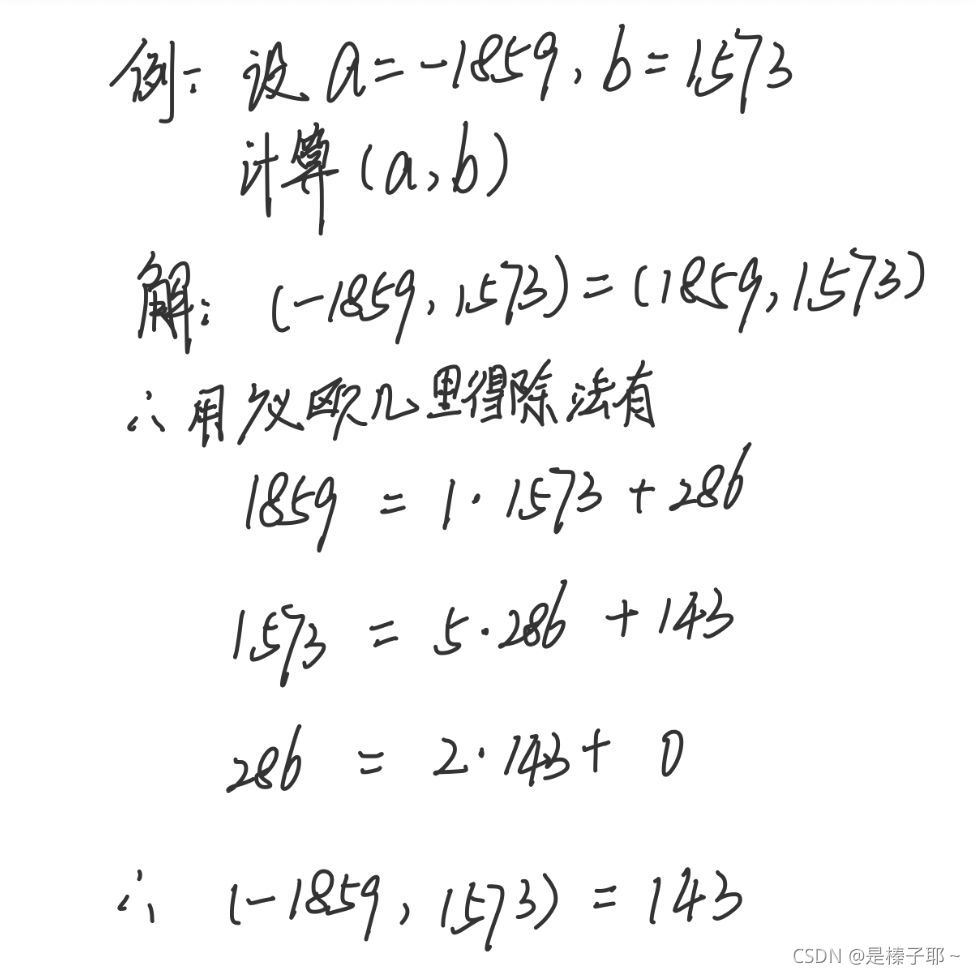 例: 设 a=-1859, b=1573
计算(a,b)
解: (-1859,1573)=(1859,1573)
∴用广义欧几里得除法有
1859 = 1·1573+286
1573 = 5·286+143
286 = 2·143+ 0
∴ (-1859, 1573) = 143
CSDN @是榛子耶~